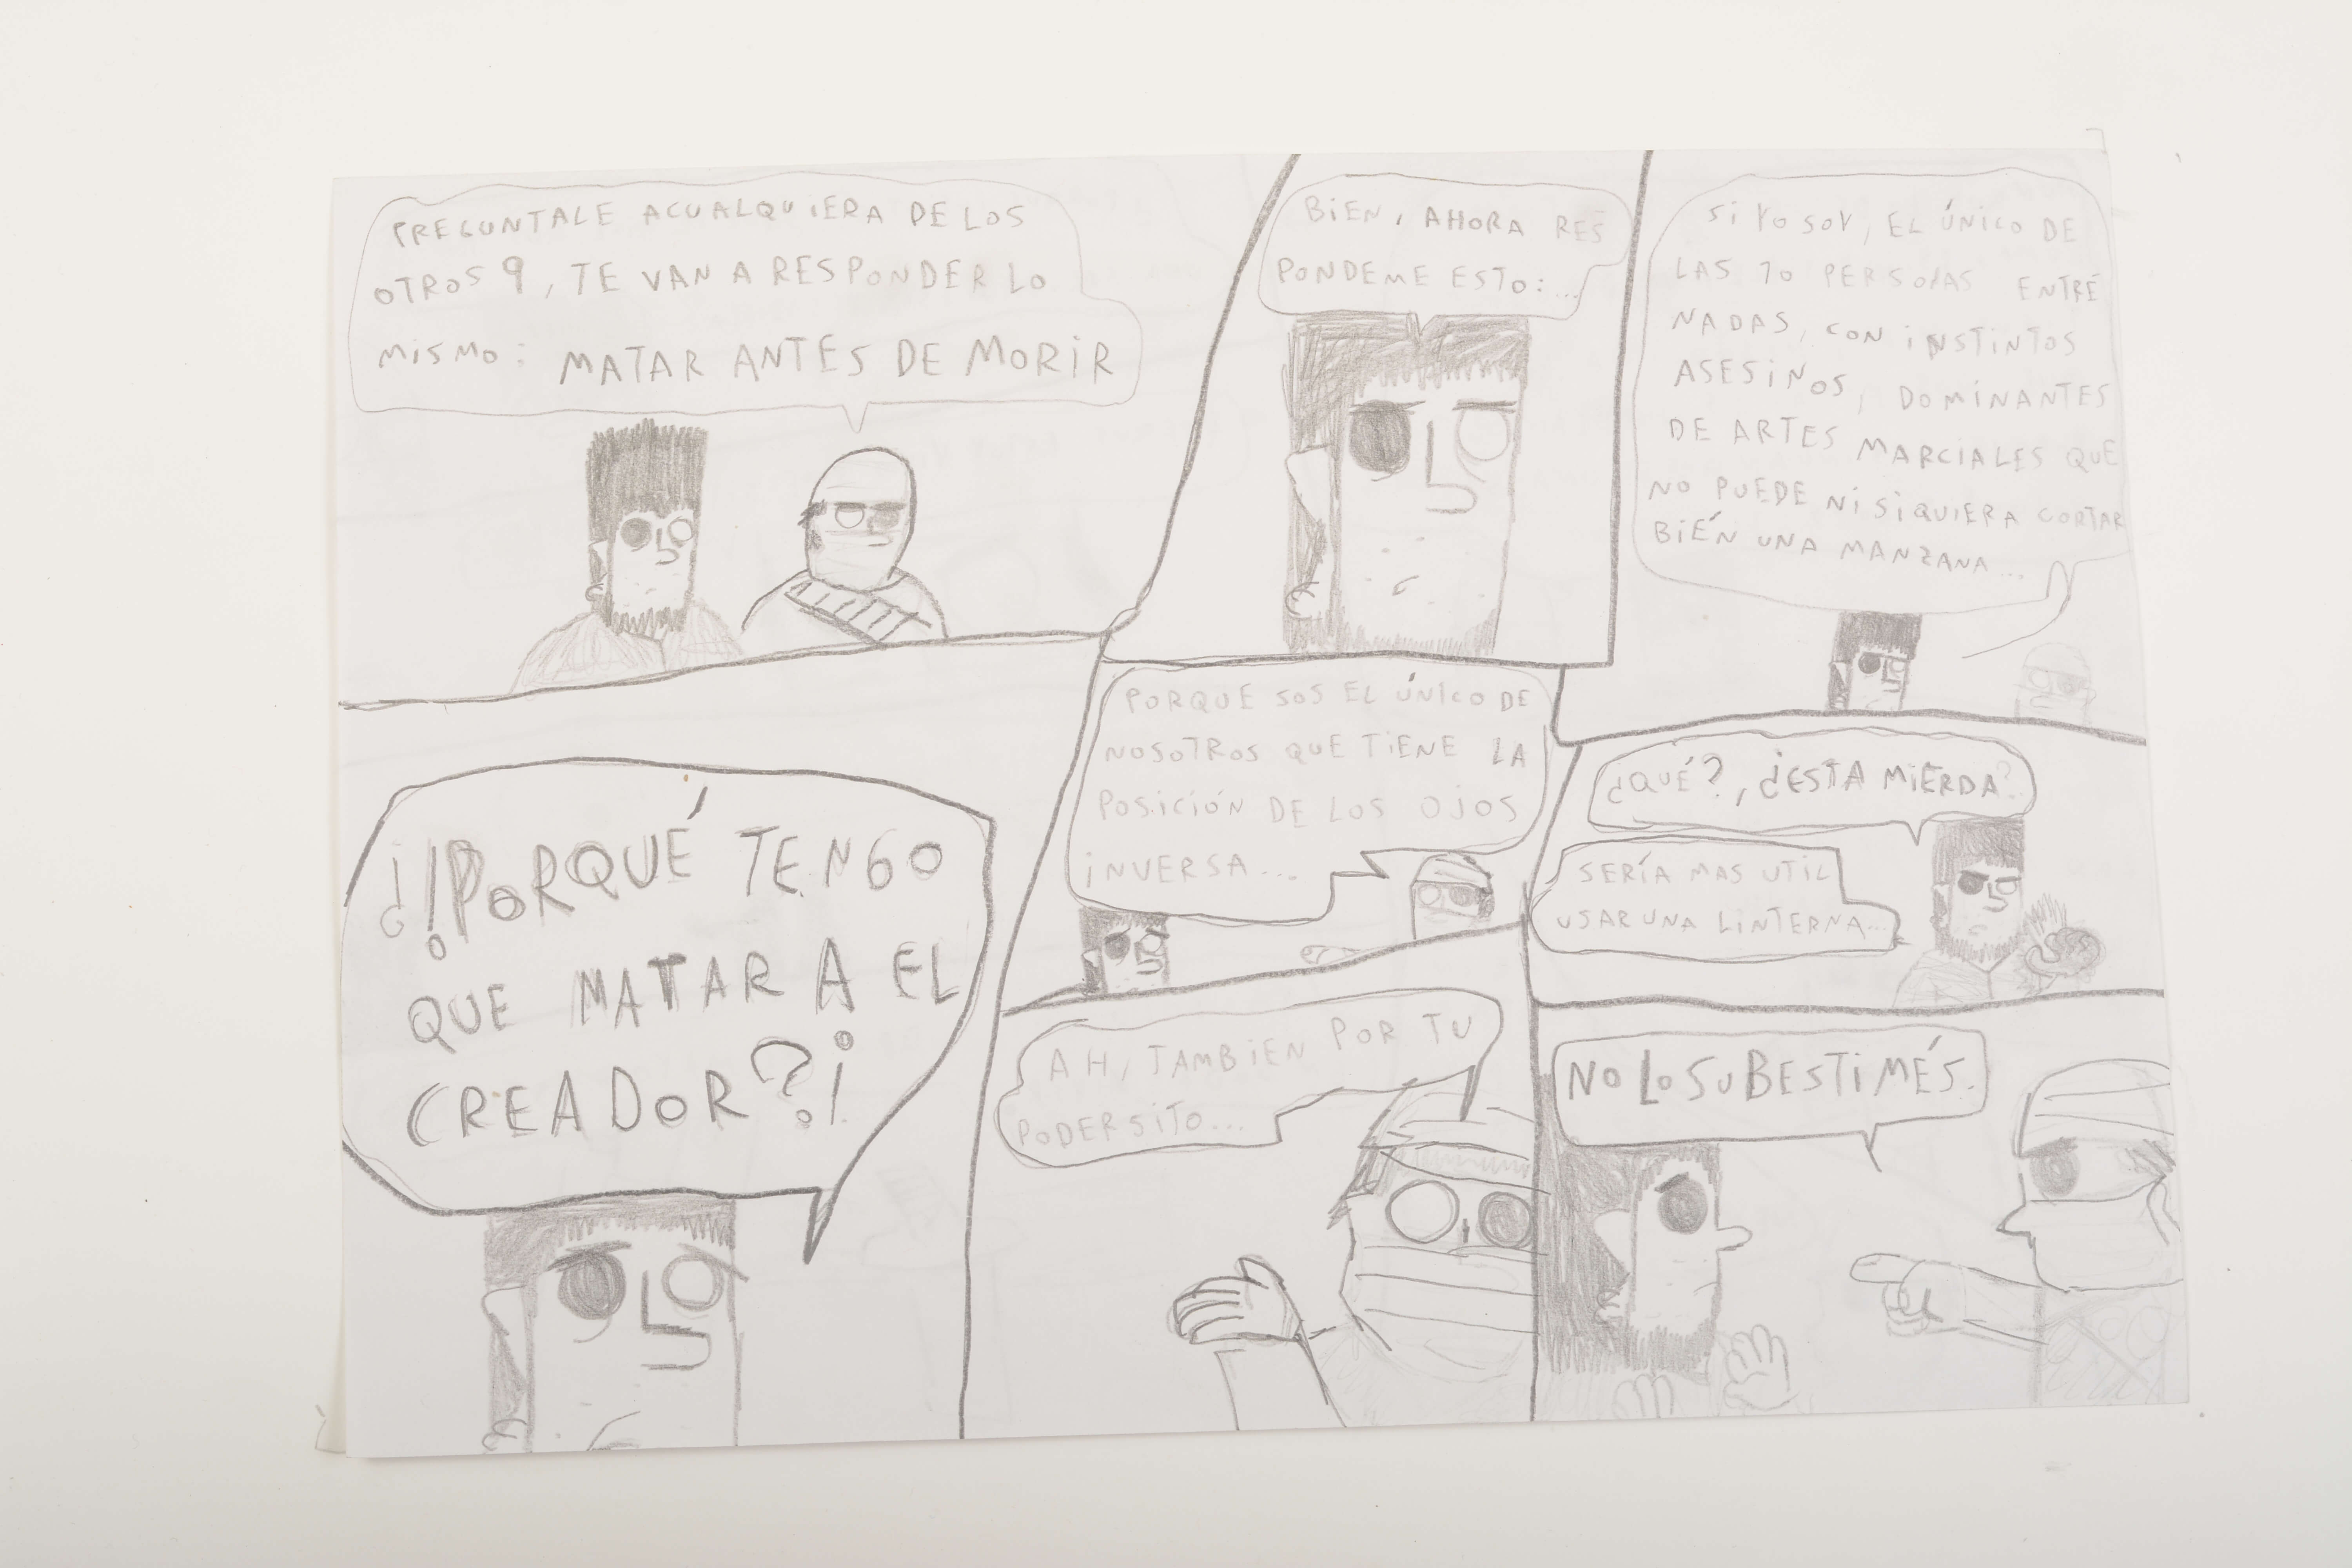 PREGUNTALE ACUALQUIERA DE LOS
OTROS 9, TE VAN A RESPONDER LO
MISMO: MATAR ANTES DE MORIR
BIEN, AHORA RES
PONDEME ESTO:...
SI YO SOY, EL ÚNICO DE
LAS 10 PERSONAS ENTRE
NADAS, CON INSTINTOS
ASESINOS, DOMINANTES
DE ARTES MARCIALES QUE
NO PUEDE NI SIQUIERA CORTAR
BIÉN UNA MANZANA...
¿¡PORQUÉ TENGO
QUE MATAR A EL
CREADOR?¡
PORQUE SOS EL ÚNICO DE
NOSOTROS QUE TIENE LA
POSICIÓN DE LOS OJOS
INVERSA...
AH, TAMBIEN POR TU
PODERSITO...
¿QUÉ?, ¿ESTA MIERDA?
SERÍA MAS UTIL
USAR UNA LINTERNA...
NO LO SUBESTIMÉS.